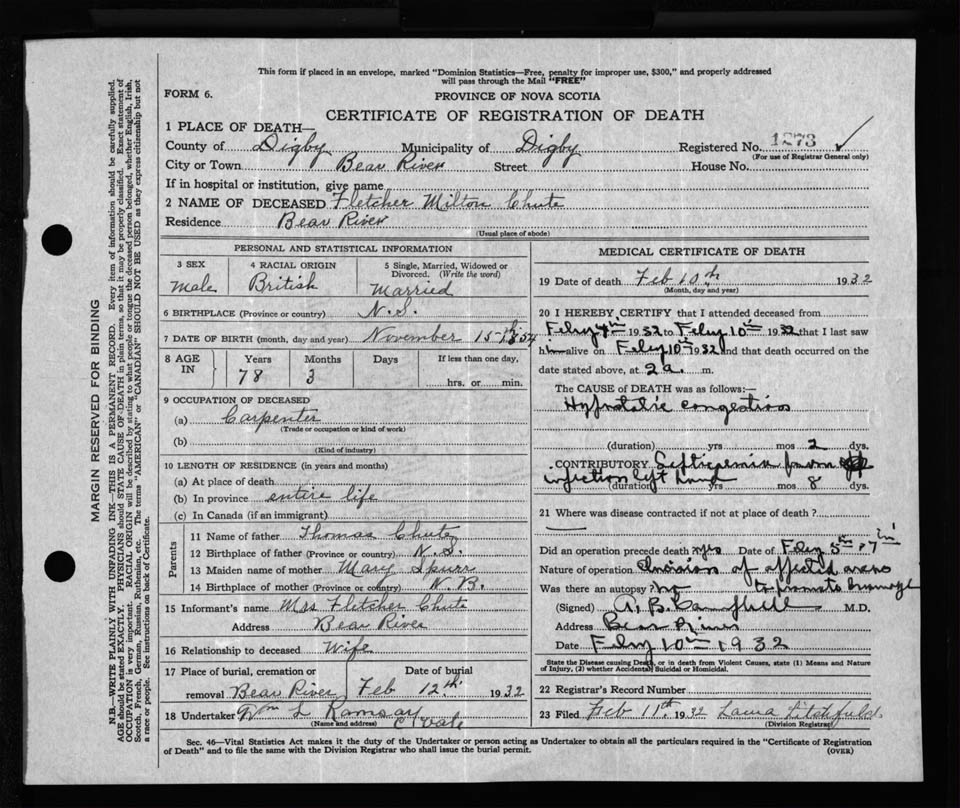 This form if placed in an envelope, marked "Dominion Statistics—Free, penalty for improper use, $300," and properly addressed
will pass through the Mail "FREE"
FORM 6.
PROVINCE OF NOVA SCOTIA
CERTIFICATE OF REGISTRATION OF DEATH
1 PLACE OF DEATH—
County of Digby Municipality of Digby Registered No. 1273
(For use of Registrar General only)
City or Town Bear River Street House No.
If in hospital or institution, give name
2 NAME OF DECEASED Fletcher Milton Chute
Residence Bear River
(Usual place of abode)
PERSONAL AND STATISTICAL INFORMATION
3 SEX 4 RACIAL ORIGIN 5 Single, Married, Widowed or
Divorced. (Write the word)
Male British Married
6 BIRTHPLACE (Province or country) N.S.
7 DATE OF BIRTH (month, day and year) November 15th 1854
8 AGE IN Years Months Days If less than one day,
78 3 hrs. or min.
9 OCCUPATION OF DECEASED
(a) Carpenter
(Trade or occupation or kind of work)
(b)
(Kind of industry)
10 LENGTH OF RESIDENCE (in years and months)
(a) At place of death
(b) In province entire life
(c) In Canada (if an immigrant)
Parents
11 Name of father Thomas Chute
12 Birthplace of father (Province or country) N.S.
13 Maiden name of mother Mary Spurr
14 Birthplace of mother (Province or country) N.B.
15 Informant's name Mrs Fletcher Chute
Address Bear River
16 Relationship to deceased Wife
17 Place of burial, cremation or Date of burial
removal Bear River Feb 12th 1932
18 Undertaker Wm L Ramsay
(Name and address)
MEDICAL CERTIFICATE OF DEATH
19 Date of death Feb 10th 1932
(Month, day and year)
20 I HEREBY CERTIFY that I attended deceased from
Feby 4th 1932 to Feby 10th 1932 that I last saw
him alive on Feby 10th 1932 and that death occurred on the
date stated above, at 2 a. m.
The CAUSE OF DEATH was as follows:—
Hypostatic congestion
(duration) yrs mos 2 dys.
CONTRIBUTORY Septicemia from
infection left hand
(duration) yrs mos 8 dys.
21 Where was disease contracted if not at place of death?
Did an operation precede death? yes Date of Feby 5th, 7th
Nature of operation Incision of affected areas
Was there an autopsy? no to promote drainage
(Signed) A. B. Campbell M.D.
Address Bear River
Date Feby 10th 1932
State the Disease causing Death, or in death from Violent Causes, state (1) Means and Nature
of Injury, (2) whether Accidental, Suicidal or Homicidal.
22 Registrar's Record Number
23 Filed Feb 11th 1932 Laura Litchfield
(Division Registrar)
Sec. 46—Vital Statistics Act makes it the duty of the Undertaker or person acting as Undertaker to obtain all the particulars required in the "Certificate of Registration
of Death" and to file the same with the Division Registrar who shall issue the burial permit.
(OVER)
MARGIN RESERVED FOR BINDING
N.B.—WRITE PLAINLY WITH UNFADING INK—THIS IS A PERMANENT RECORD. Every item of information should be carefully supplied.
AGE should be stated EXACTLY. PHYSICIANS should STATE CAUSE OF DEATH in plain terms, so that it may be properly classified. Exact statement of
OCCUPATION is very important. RACIAL ORIGIN will be described by stating to what people or tongue the deceased person belonged, whether English, Irish,
Scotch, French, German, Russian, Ruthenian, etc. The terms "AMERICAN" or "CANADIAN" SHOULD NOT BE USED as they express citizenship but not
a race or people. See instructions on back of Certificate.